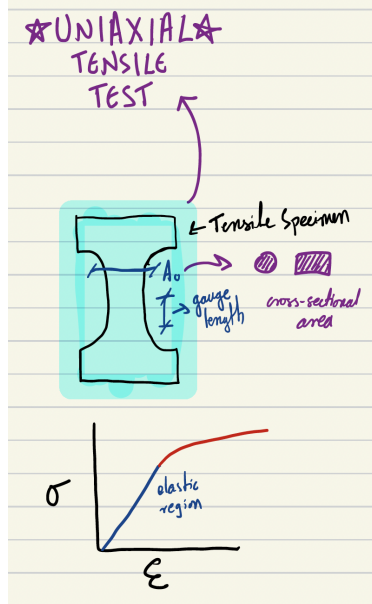 ☆UNIAXIAL☆
TENSILE
TEST
Tensile Specimen
A₀
gauge
length
cross-sectional
area
σ
elastic
region
ε